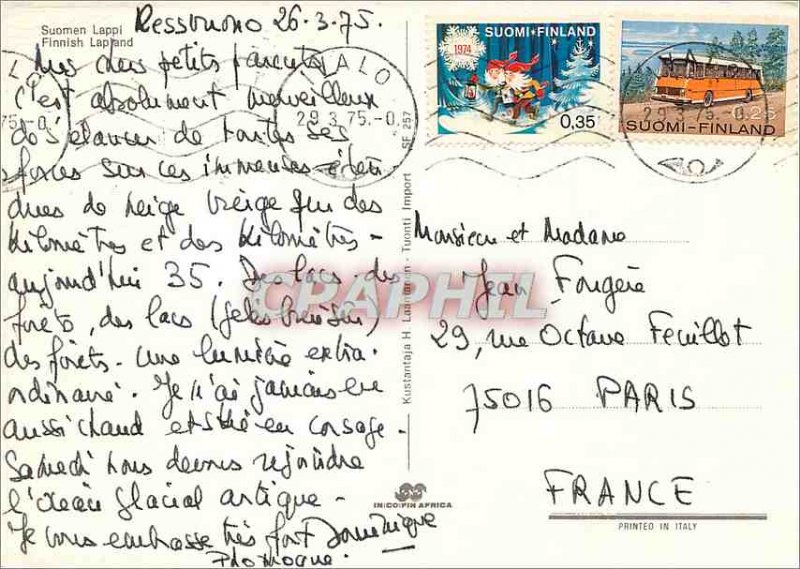 Suomen Lappi
Finnish Lapland
Ressbuono 26.3.75.
Mes chers petits parents
c'est absolument merveilleux
de s'élancer de toutes ses
forces sur ces immenses éten
dues de neige vierge sur des
kilomètres et des kilomètres -
aujourd'hui 35. Des lacs, des
forêts, des lacs (gelés bien sûr)
des forêts. Une lumière extra.
ordinaire. Je n'ai jamais eu
aussi chaud et skié en corsage.
Samedi nous devons rejoindre
l'océan glacial arctique -
Je vous embrasse très fort Dominique
IVALO
29.3.75.-0.
1974
SUOMI·FINLAND
0,35
0.25
SUOMI-FINLAND
29.3.75.-0.
Kustantaja H. Laamanen - Tuonti Import SF 257
CPAPHIL
Monsieur et Madame
Jean Fougère
29, rue Octave Feuillet
75016 PARIS
FRANCE
IN:CO:FIN AFRICA
PRINTED IN ITALY